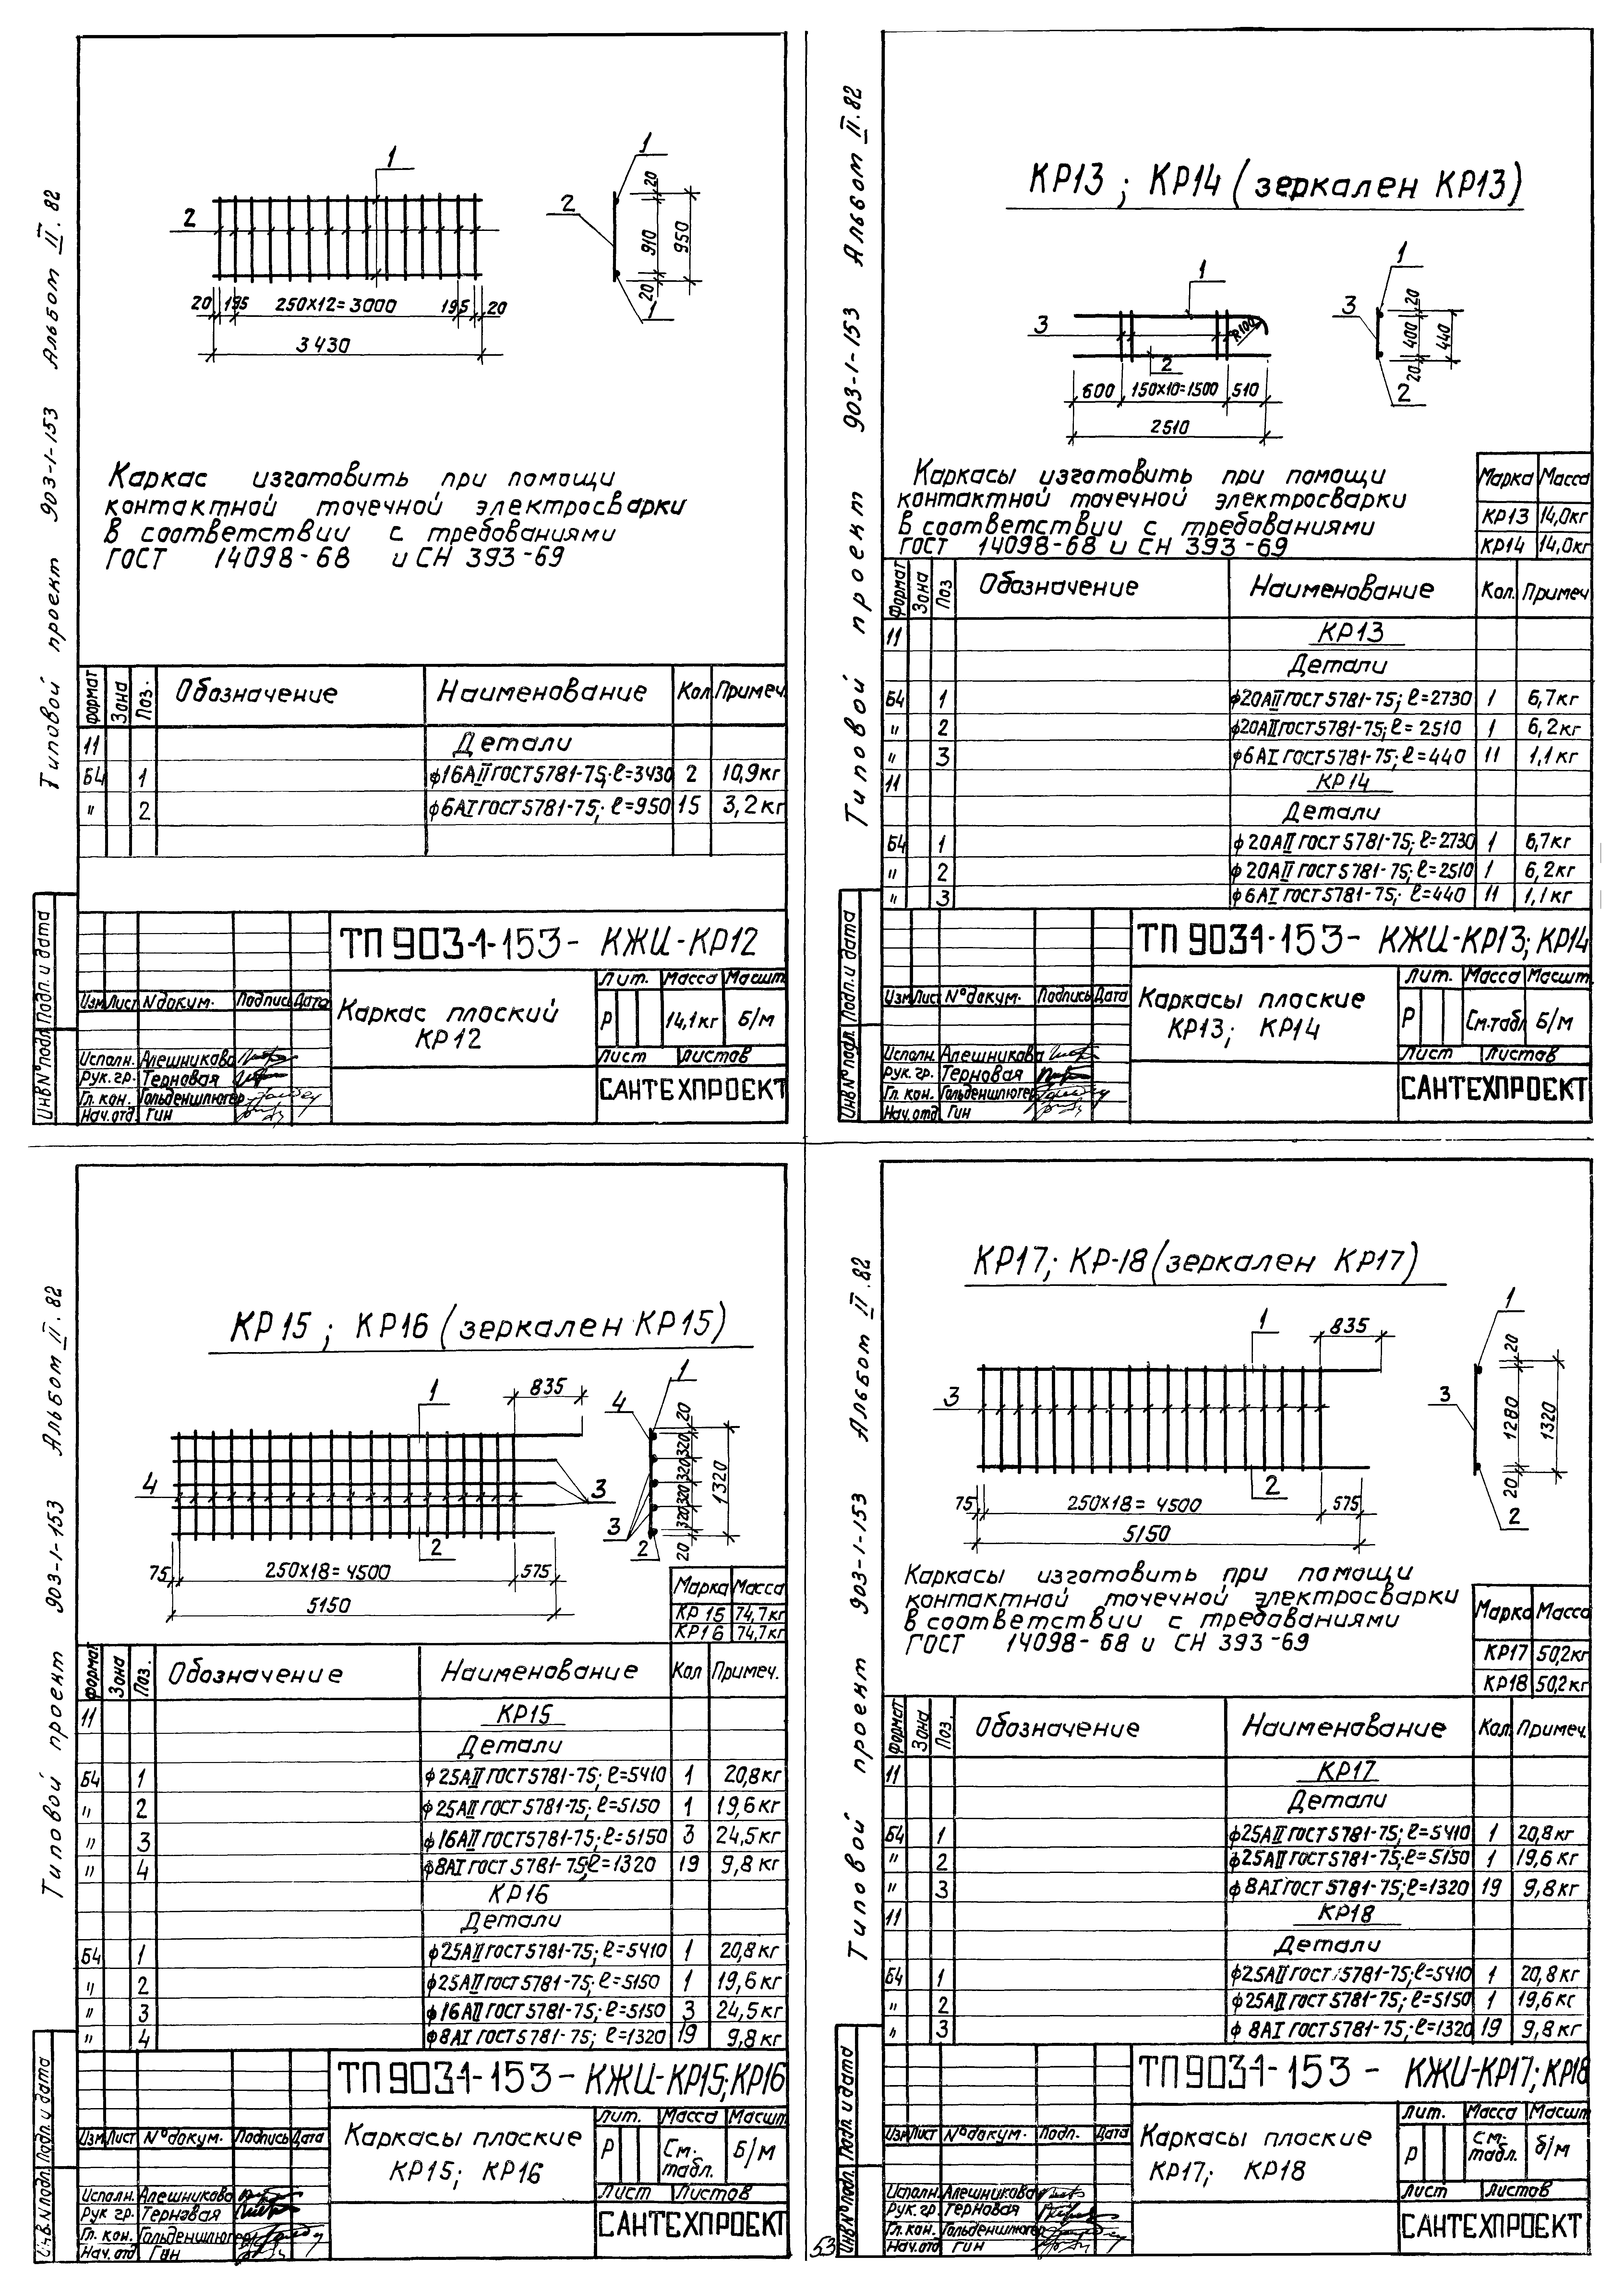 Типовой проект 903-1-153 Альбом II. 82
1
2
20 195 250х12=3000 195 20
3430
1
2
20
910
950
20
1
Каркас изготовить при помощи
контактной точечной электросварки
в соответствии с требованиями
ГОСТ 14098-68 и СН 393-69
Формат Зона Поз. Обозначение Наименование Кол Примеч.
11 Детали
Б4 1 ф16АII ГОСТ 5781-75; ℓ=3430 2 10,9кг
" 2 ф6АI ГОСТ 5781-75; ℓ=950 15 3,2кг
ТП 903-1-153- КЖИ-КР12
Изм Лист N докум. Подпись Дата
Каркас плоский
КР12
Лит. Масса Масшт.
Р 14,1кг Б/м
Лист Листов
САНТЕХПРОЕКТ
Исполн. Алешникова
Рук. гр. Терновая
Гл. кон. Гольденшлюгер
Нач. отд. Гин
Инв N°подл. Подп. и дата
Типовой проект 903-1-153 Альбом II. 82
КР13; КР14 (зеркален КР13)
1
3
R100
2
600 150х10=1500 510
2510
1
3
20
400
440
20
2
Каркасы изготовить при помощи
контактной точечной электросварки
в соответствии с требованиями
ГОСТ 14098-68 и СН 393-69
Марка Масса
КР13 14,0кг
КР14 14,0кг
Формат Зона Поз Обозначение Наименование Кол. Примеч
11 КР13
Детали
Б4 1 ф20АII ГОСТ 5781-75; ℓ=2730 1 6,7кг
" 2 ф20АII ГОСТ 5781-75; ℓ=2510 1 6,2кг
" 3 ф6АI ГОСТ 5781-75; ℓ=440 11 1,1кг
11 КР14
Детали
Б4 1 ф20АII ГОСТ 5781-75; ℓ=2730 1 6,7кг
" 2 ф20АII ГОСТ 5781-75; ℓ=2510 1 6,2кг
" 3 ф6АI ГОСТ 5781-75; ℓ=440 11 1,1кг
ТП 9031-153- КЖИ-КР13; КР14
Изм Лист N°докум. Подпись Дата
Каркасы плоские
КР13; КР14
Лит. Масса Масшт.
Р См.табл Б/м
Лист Листов
САНТЕХПРОЕКТ
Исполн. Алешникова
Рук. гр. Терновая
Гл. кон. Гольденшлюгер
Нач. отд Гин
Инв N°подл. Подп. и дата
Типовой проект 903-1-153 Альбом II. 82
КР15; КР16 (зеркален КР15)
1 835
4 3
2
75 250х18=4500 575
5150
4 1
20
320
320
320
320
1320
20
3 2
Марка Масса
КР 15 74,7кг
КР16 74,7кг
Формат Зона Поз. Обозначение Наименование Кол Примеч.
11 КР15
Детали
Б4 1 ф25АII ГОСТ 5781-75; ℓ=5410 1 20,8кг
" 2 ф25АII ГОСТ 5781-75; ℓ=5150 1 19,6кг
" 3 ф16АII ГОСТ 5781-75; ℓ=5150 3 24,5кг
" 4 ф8АI ГОСТ 5781-75; ℓ=1320 19 9,8кг
КР16
Детали
Б4 1 ф25АII ГОСТ 5781-75; ℓ=5410 1 20,8кг
" 2 ф25АII ГОСТ 5781-75; ℓ=5150 1 19,6кг
" 3 ф16АII ГОСТ 5781-75; ℓ=5150 3 24,5кг
" 4 ф8АI ГОСТ 5781-75; ℓ=1320 19 9,8кг
ТП 9031-153- КЖИ-КР15; КР16
Изм Лист N°докум. Подпись Дата
Каркасы плоские
КР15; КР16
Лит. Масса Масшт.
Р См. табл. Б/м
Лист Листов
САНТЕХПРОЕКТ
Исполн. Алешникова
Рук гр. Терновая
Гл. кон. Гольденшлюгер
Нач. отд Гин
Инв.N подл. Подп. и дата
Типовой проект 903-1-153 Альбом II. 82
КР17; КР-18 (зеркален КР17)
1 835
3
2
75 250х18=4500 575
5150
1
3
20
1280
1320
20
2
Каркасы изготовить при помощи
контактной точечной электросварки
в соответствии с требованиями
ГОСТ 14098-68 и СН 393-69
Марка Масса
КР17 50,2кг
КР18 50,2кг
Формат Зона Поз. Обозначение Наименование Кол. Примеч.
11 КР17
Детали
Б4 1 ф25АII ГОСТ 5781-75; ℓ=5410 1 20,8кг
" 2 ф25АII ГОСТ 5781-75; ℓ=5150 1 19,6кг
" 3 ф8АI ГОСТ 5781-75; ℓ=1320 19 9,8кг
11 КР18
Детали
Б4 1 ф25АII ГОСТ 5781-75; ℓ=5410 1 20,8кг
" 2 ф25АII ГОСТ 5781-75; ℓ=5150 1 19,6кг
" 3 ф8АI ГОСТ 5781-75; ℓ=1320 19 9,8кг
ТП 9031-153 - КЖИ-КР17; КР18
Изм Лист N°докум. Подп. Дата
Каркасы плоские
КР17; КР18
Лит. Масса Масшт
Р См. табл. б/м
Лист Листов
САНТЕХПРОЕКТ
Исполн. Алешникова
Рук. гр. Терновая
Гл. кон. Гольденшлюгер
Нач. отд Гин
Инв N°подл. Подп. и дата
53